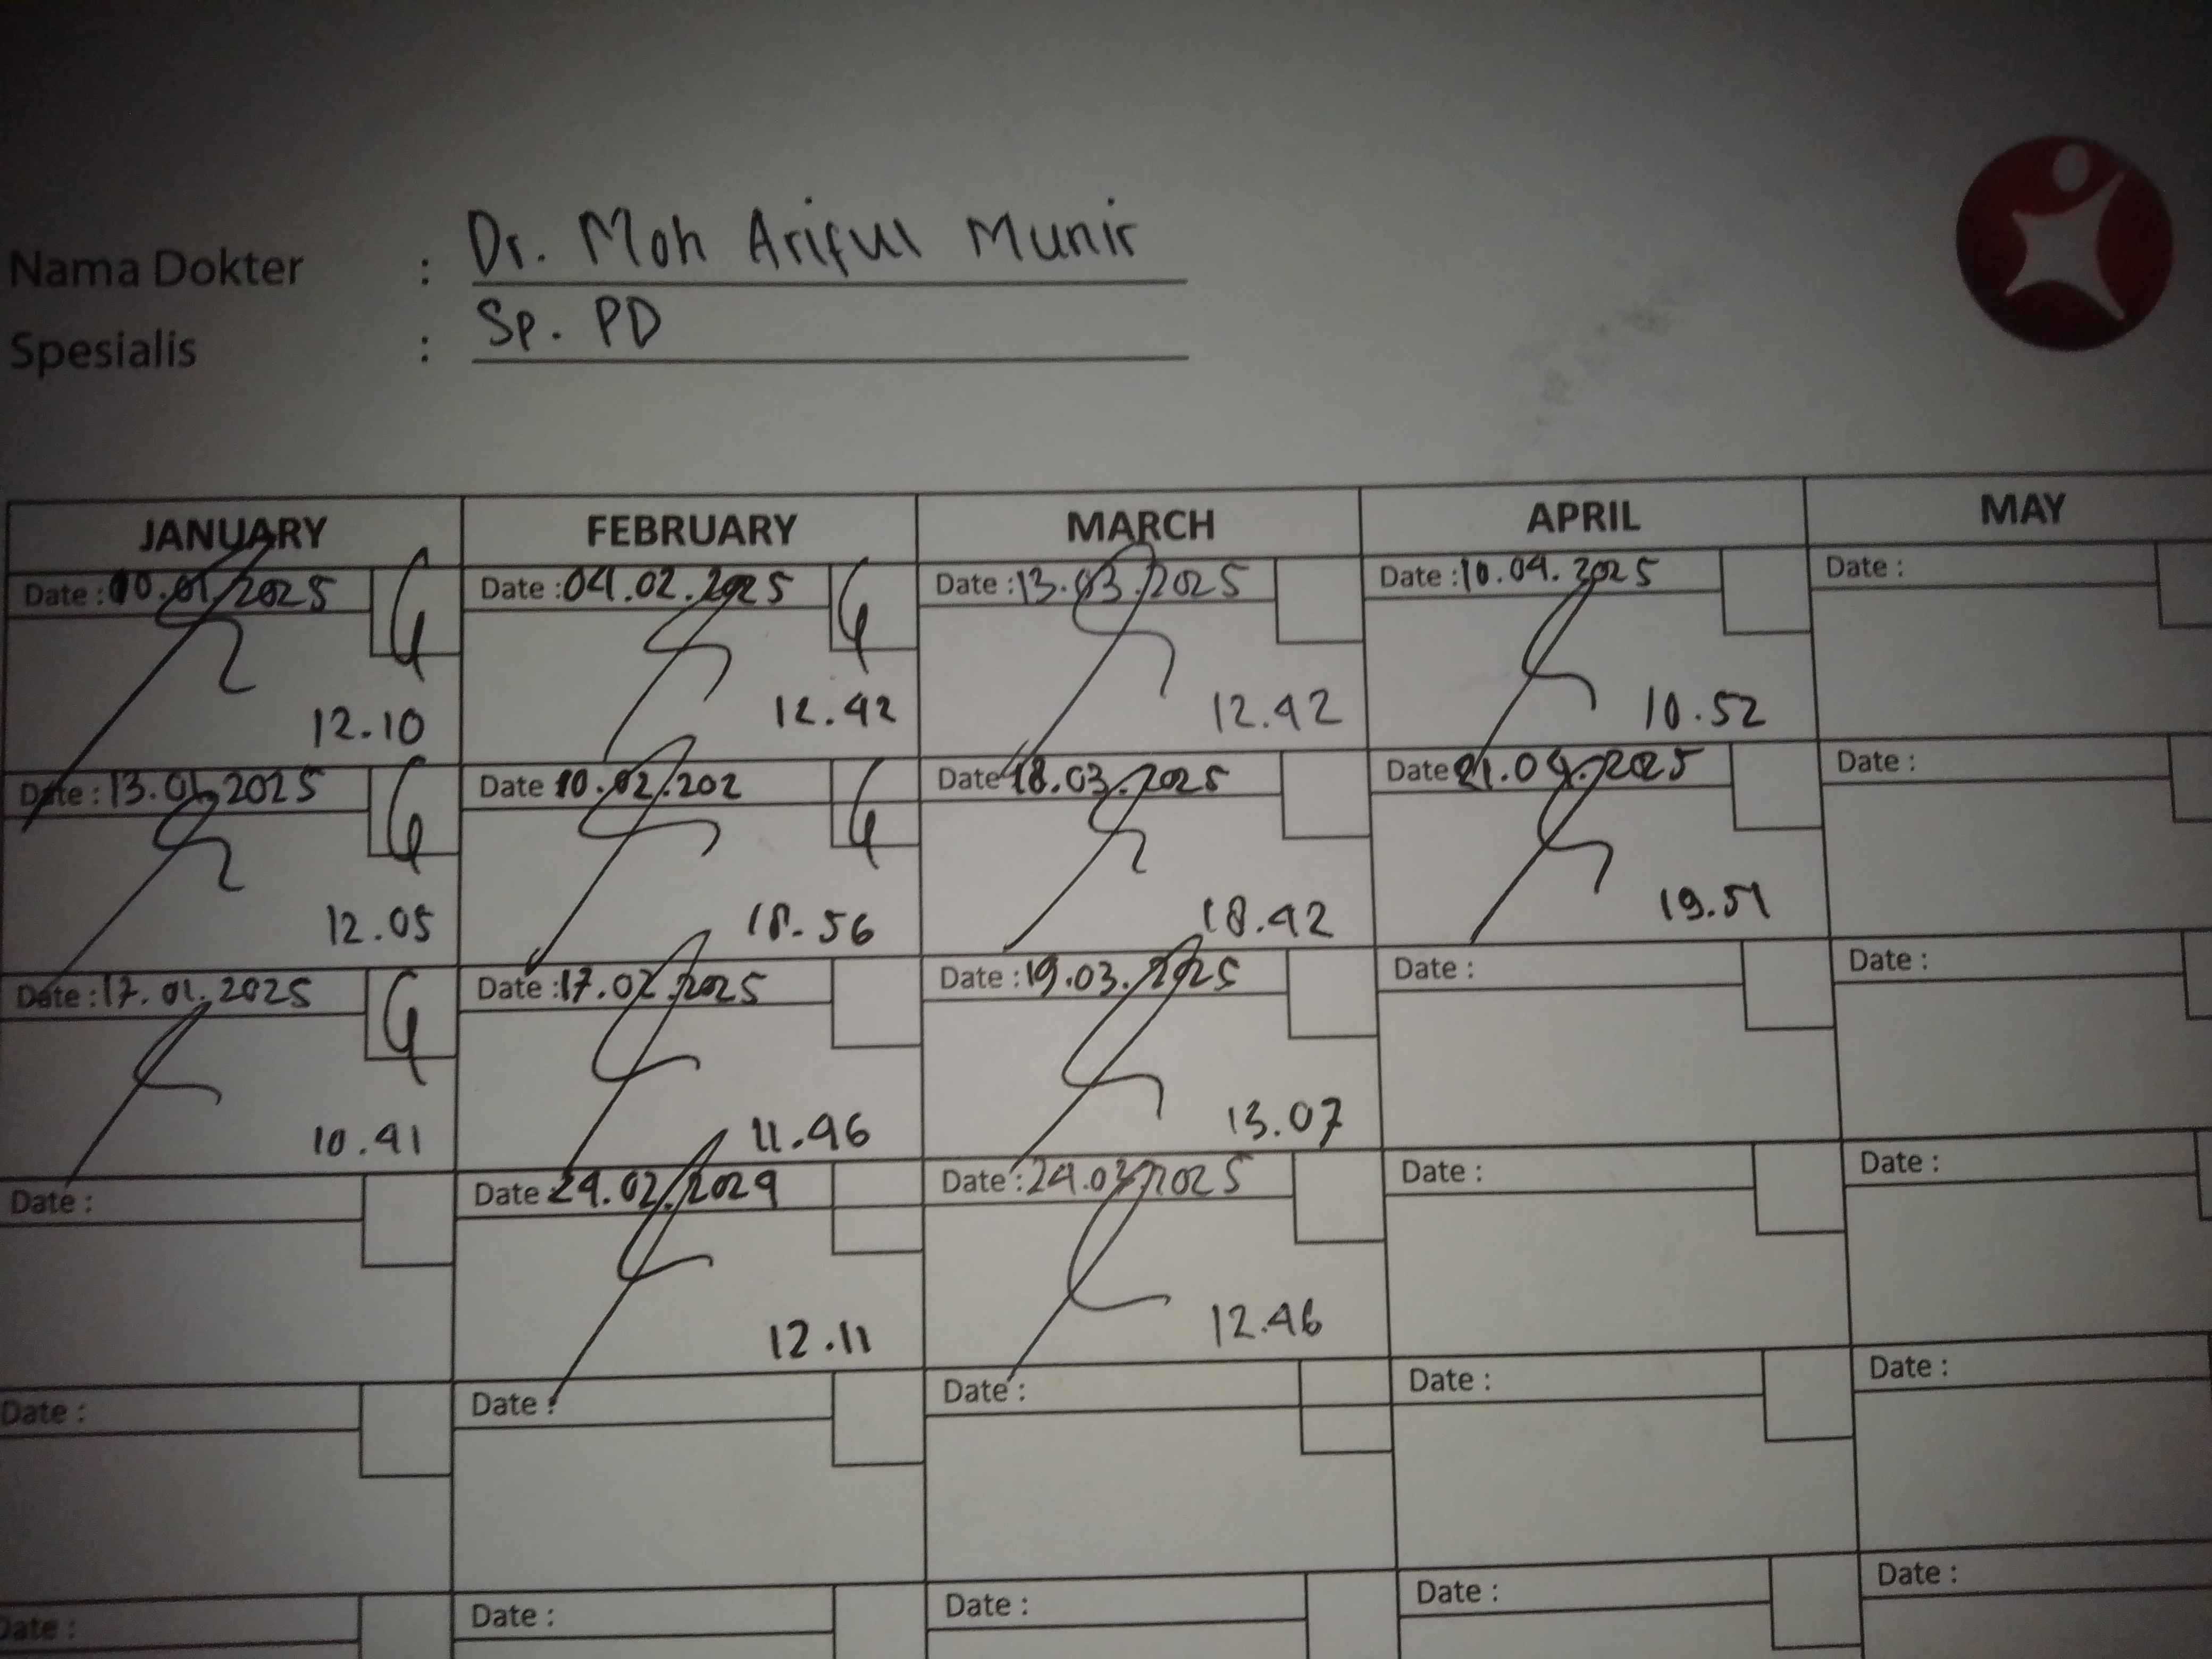 Nama Dokter : Dr. Moh Ariful Munir
Spesialis : Sp. PD
JANUARY FEBRUARY MARCH APRIL MAY
Date : 10.01.2025 Date : 04.02.2025 Date : 13.03.2025 Date : 10.04.2025 Date :
12.10 12.42 12.42 10.52
Date : 13.01.2025 Date 10.02.202 Date 18.03.2025 Date 21.04.2025 Date :
12.05 18.56 18.42 19.51
Date : 17.01.2025 Date : 17.02.2025 Date : 19.03.2025 Date : Date :
10.41 11.46 13.07
Date : Date 24.02.2024 Date : 24.03.2025 Date : Date :
12.11 12.46
Date : Date : Date : Date : Date :
Date : Date : Date : Date : Date :